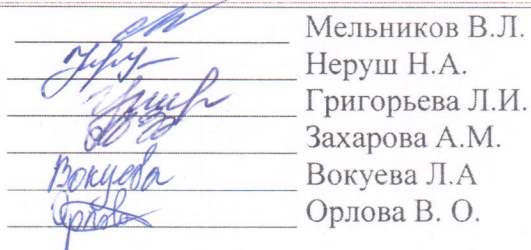 Мельников В.Л.
Неруш Н.А.
Григорьева Л.И.
Захарова А.М.
Вокуева Вокуева Л.А
Орлова В. О.